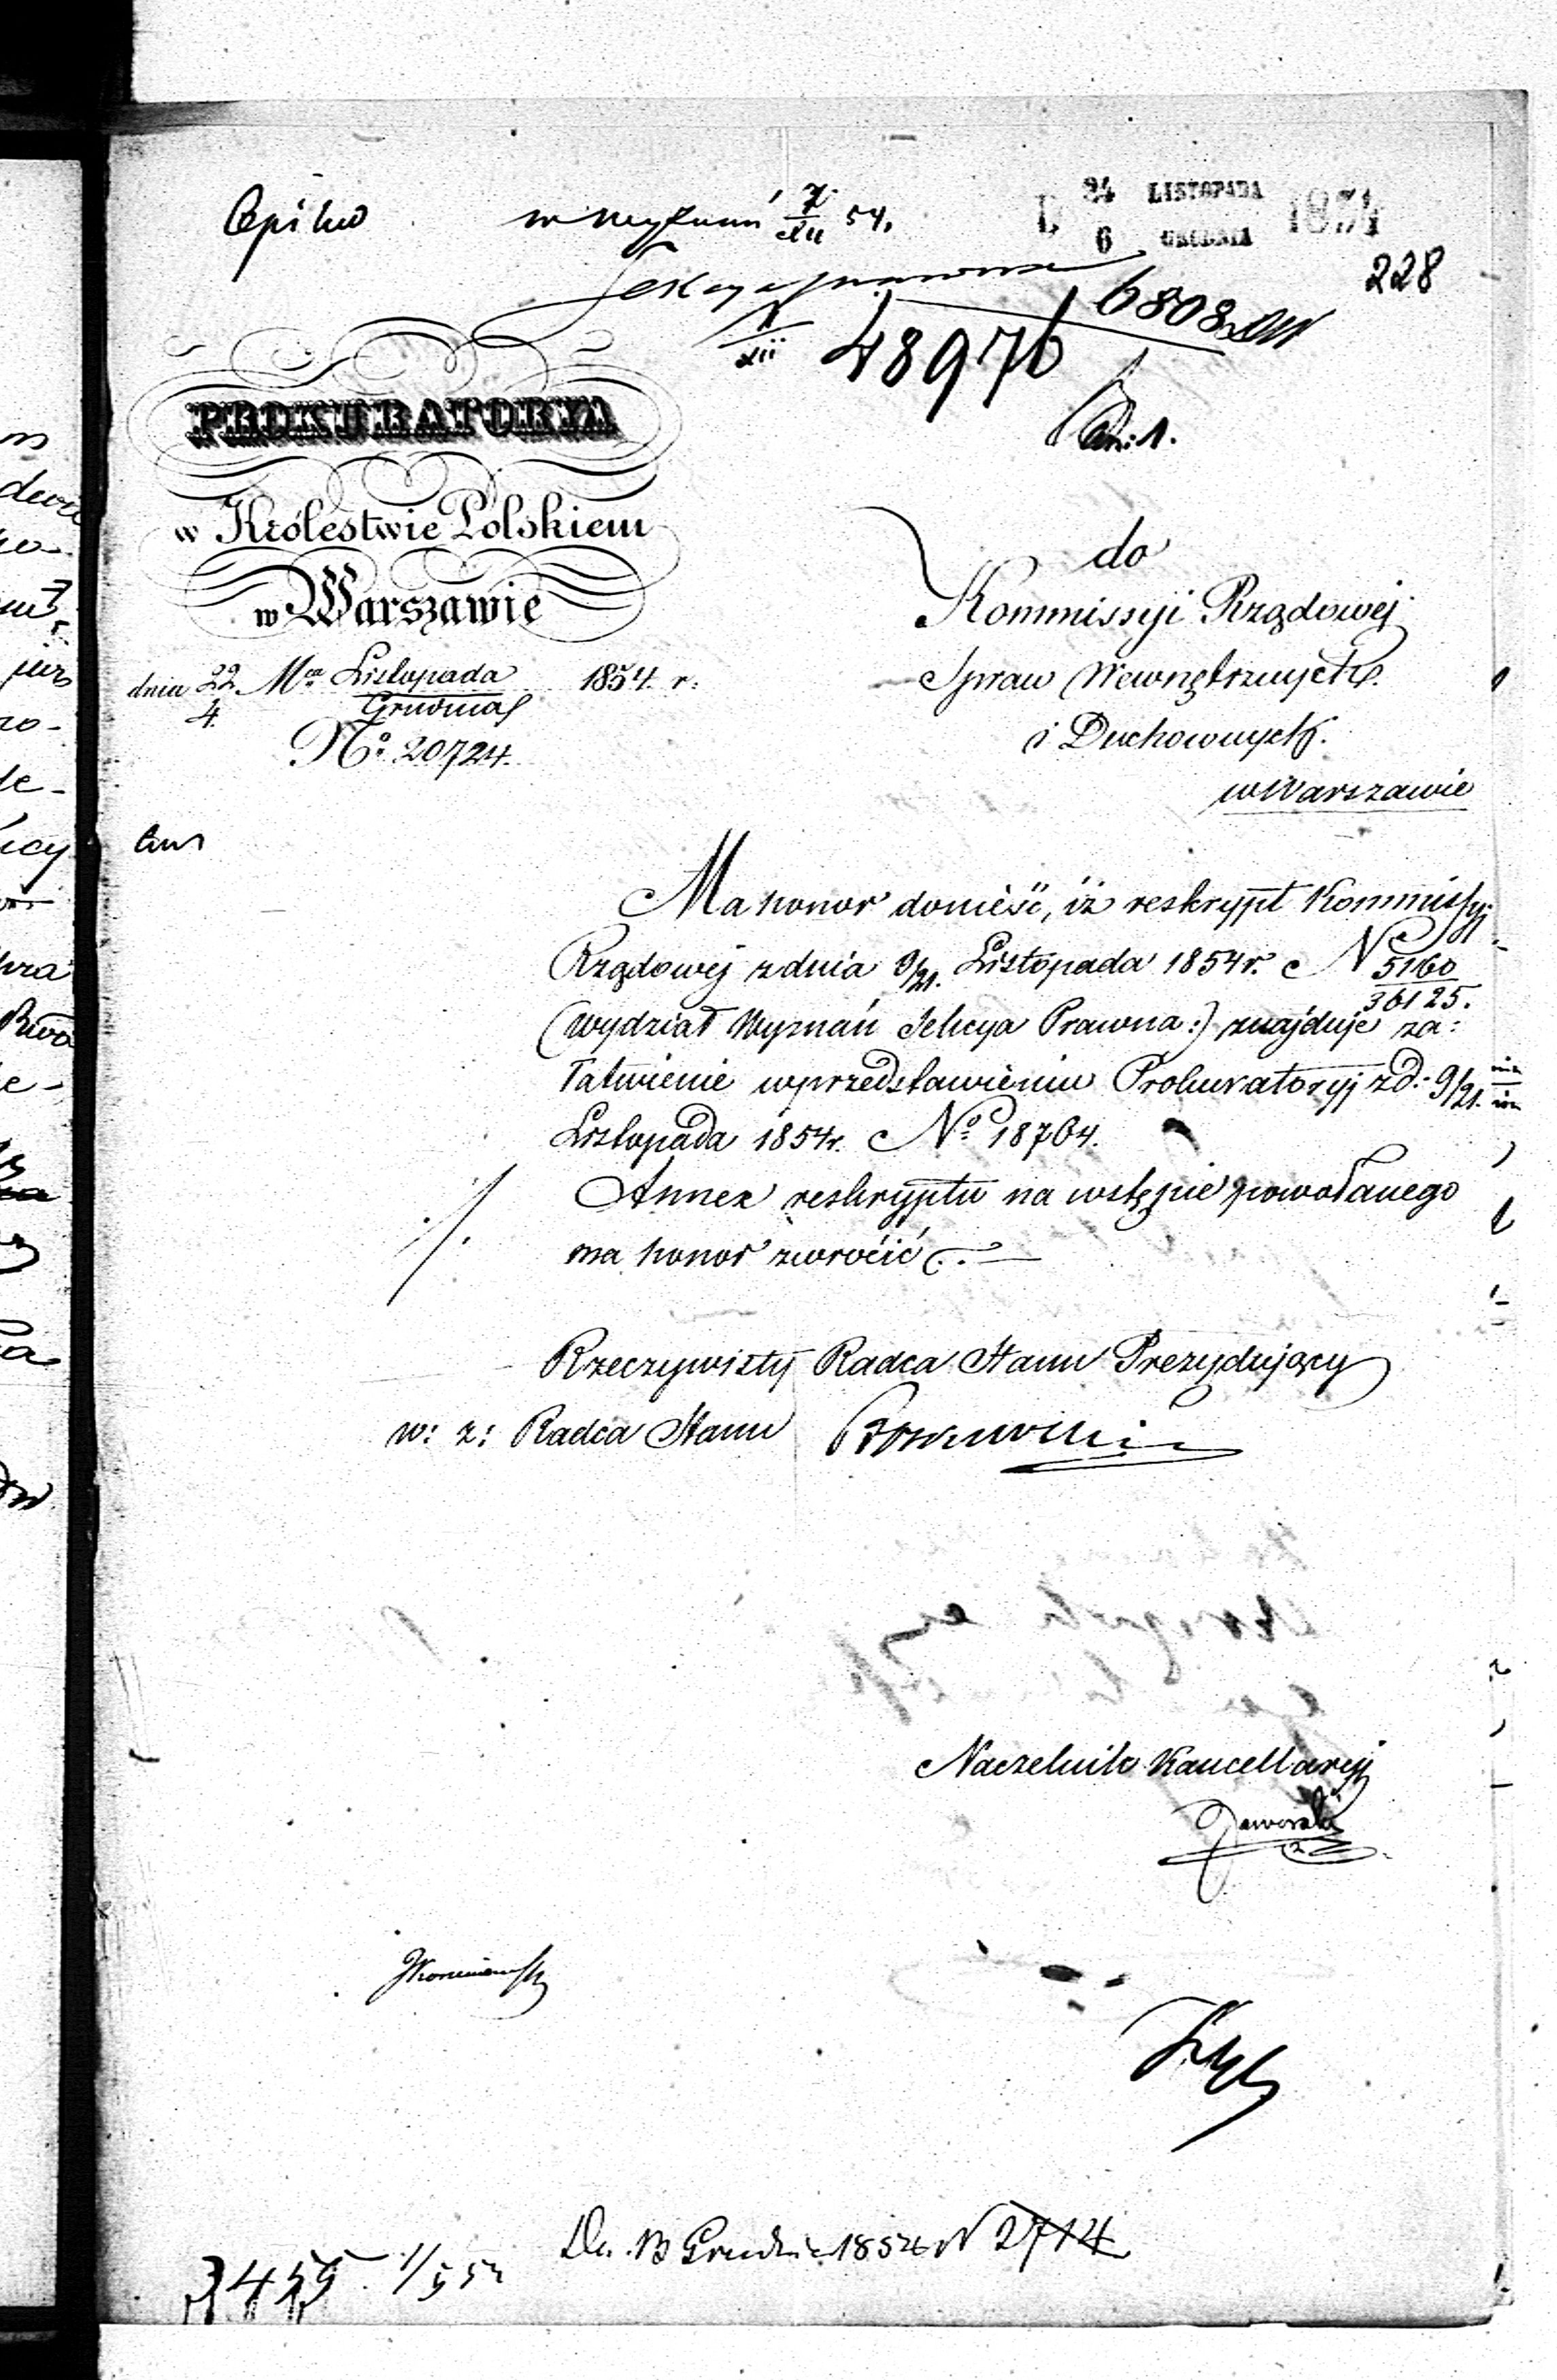 w Wyznań 7/XII 54.
24 LISTOPADA
6 GRUDNIA 1854
228
Sekcya prawna
48976
6808
PROKURATORYA
w Królestwie Polskiem
w Warszawie
dnia 22 Mca Listopada 1854. r.
4. Grudnia
No. 20724.
do
Kommissyi Rządowej
Spraw Wewnętrznych
i Duchownych.
w Warszawie
Ma honor donieść, iż reskrypt Kommissyj
Rządowej z dnia 9/21. Listopada 1854 r. No 5160
36125.
(Wydział Wyznań Sekcya Prawna:) znajduje za:
łatwienie w przedstawieniu Prokuratoryj z d. 9/21.
Listopada 1854 r. No 18764.
Annex reskryptu na wstępie powołanego
ma honor zwrócić.
Rzeczywisty Radca Stanu Prezydujący
w: z: Radca Stanu
Naczelnik Kancellaryj
Jaworski
Grudnia 1854 N 2714